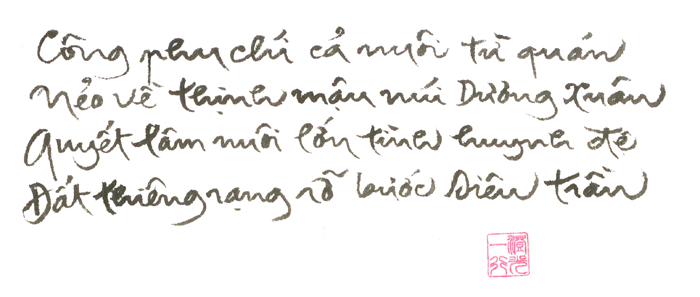 Công phu chú cả nuôi từ quán
Nẻo về thịnh mậu núi Dương Xuân
Quyết tâm nuôi lớn tình huynh đệ
Đất thiêng rạng rỡ bước siêu trần
一行